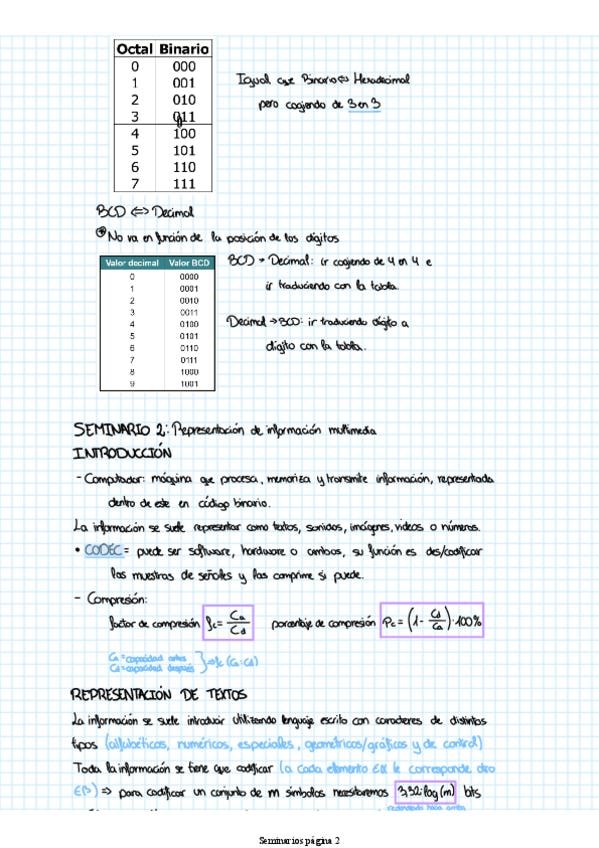 Octal Binario
0 000
1 001
2 010
3 011
4 100
5 101
6 110
7 111
Igual que Binario ⇔ Hexadecimal
pero cogiendo de 3 en 3
BCD ⇔ Decimal
No va en función de la posición de los dígitos
Valor decimal Valor BCD
0 0000
1 0001
2 0010
3 0011
4 0100
5 0101
6 0110
7 0111
8 1000
9 1001
BCD → Decimal: ir cogiendo de 4 en 4 e
ir traduciendo con la tabla.
Decimal → BCD: ir traduciendo dígito a
dígito con la tabla.
SEMINARIO 2: Representación de información multimedia
INTRODUCCIÓN
- Computador: máquina que procesa, memoriza y transmite información, representada
dentro de este en código binario.
La información se suele representar como textos, sonidos, imágenes, videos o números.
• CODEC = puede ser software, hardware o ambos, su función es des/codificar
las muestras de señales y las comprime si puede.
- Compresión:
factor de compresión fc = Ca/Cd porcentaje de compresión Pc = (1 - Cd/Ca) · 100%
Ca = capacidad antes
Cd = capacidad después ⇒ fc (Ca:Cd)
REPRESENTACIÓN DE TEXTOS
La información se suele introducir utilizando lenguaje escrito con caracteres de distintos
tipos (alfabéticos, numéricos, especiales, geométricos/gráficos y de control)
Toda la información se tiene que codificar (a cada elemento Eα le corresponde otro
Eβ) ⇒ para codificar un conjunto de m símbolos necesitaremos 3,32·log(m) bits
redondeado hacia arriba
Seminarios página 2